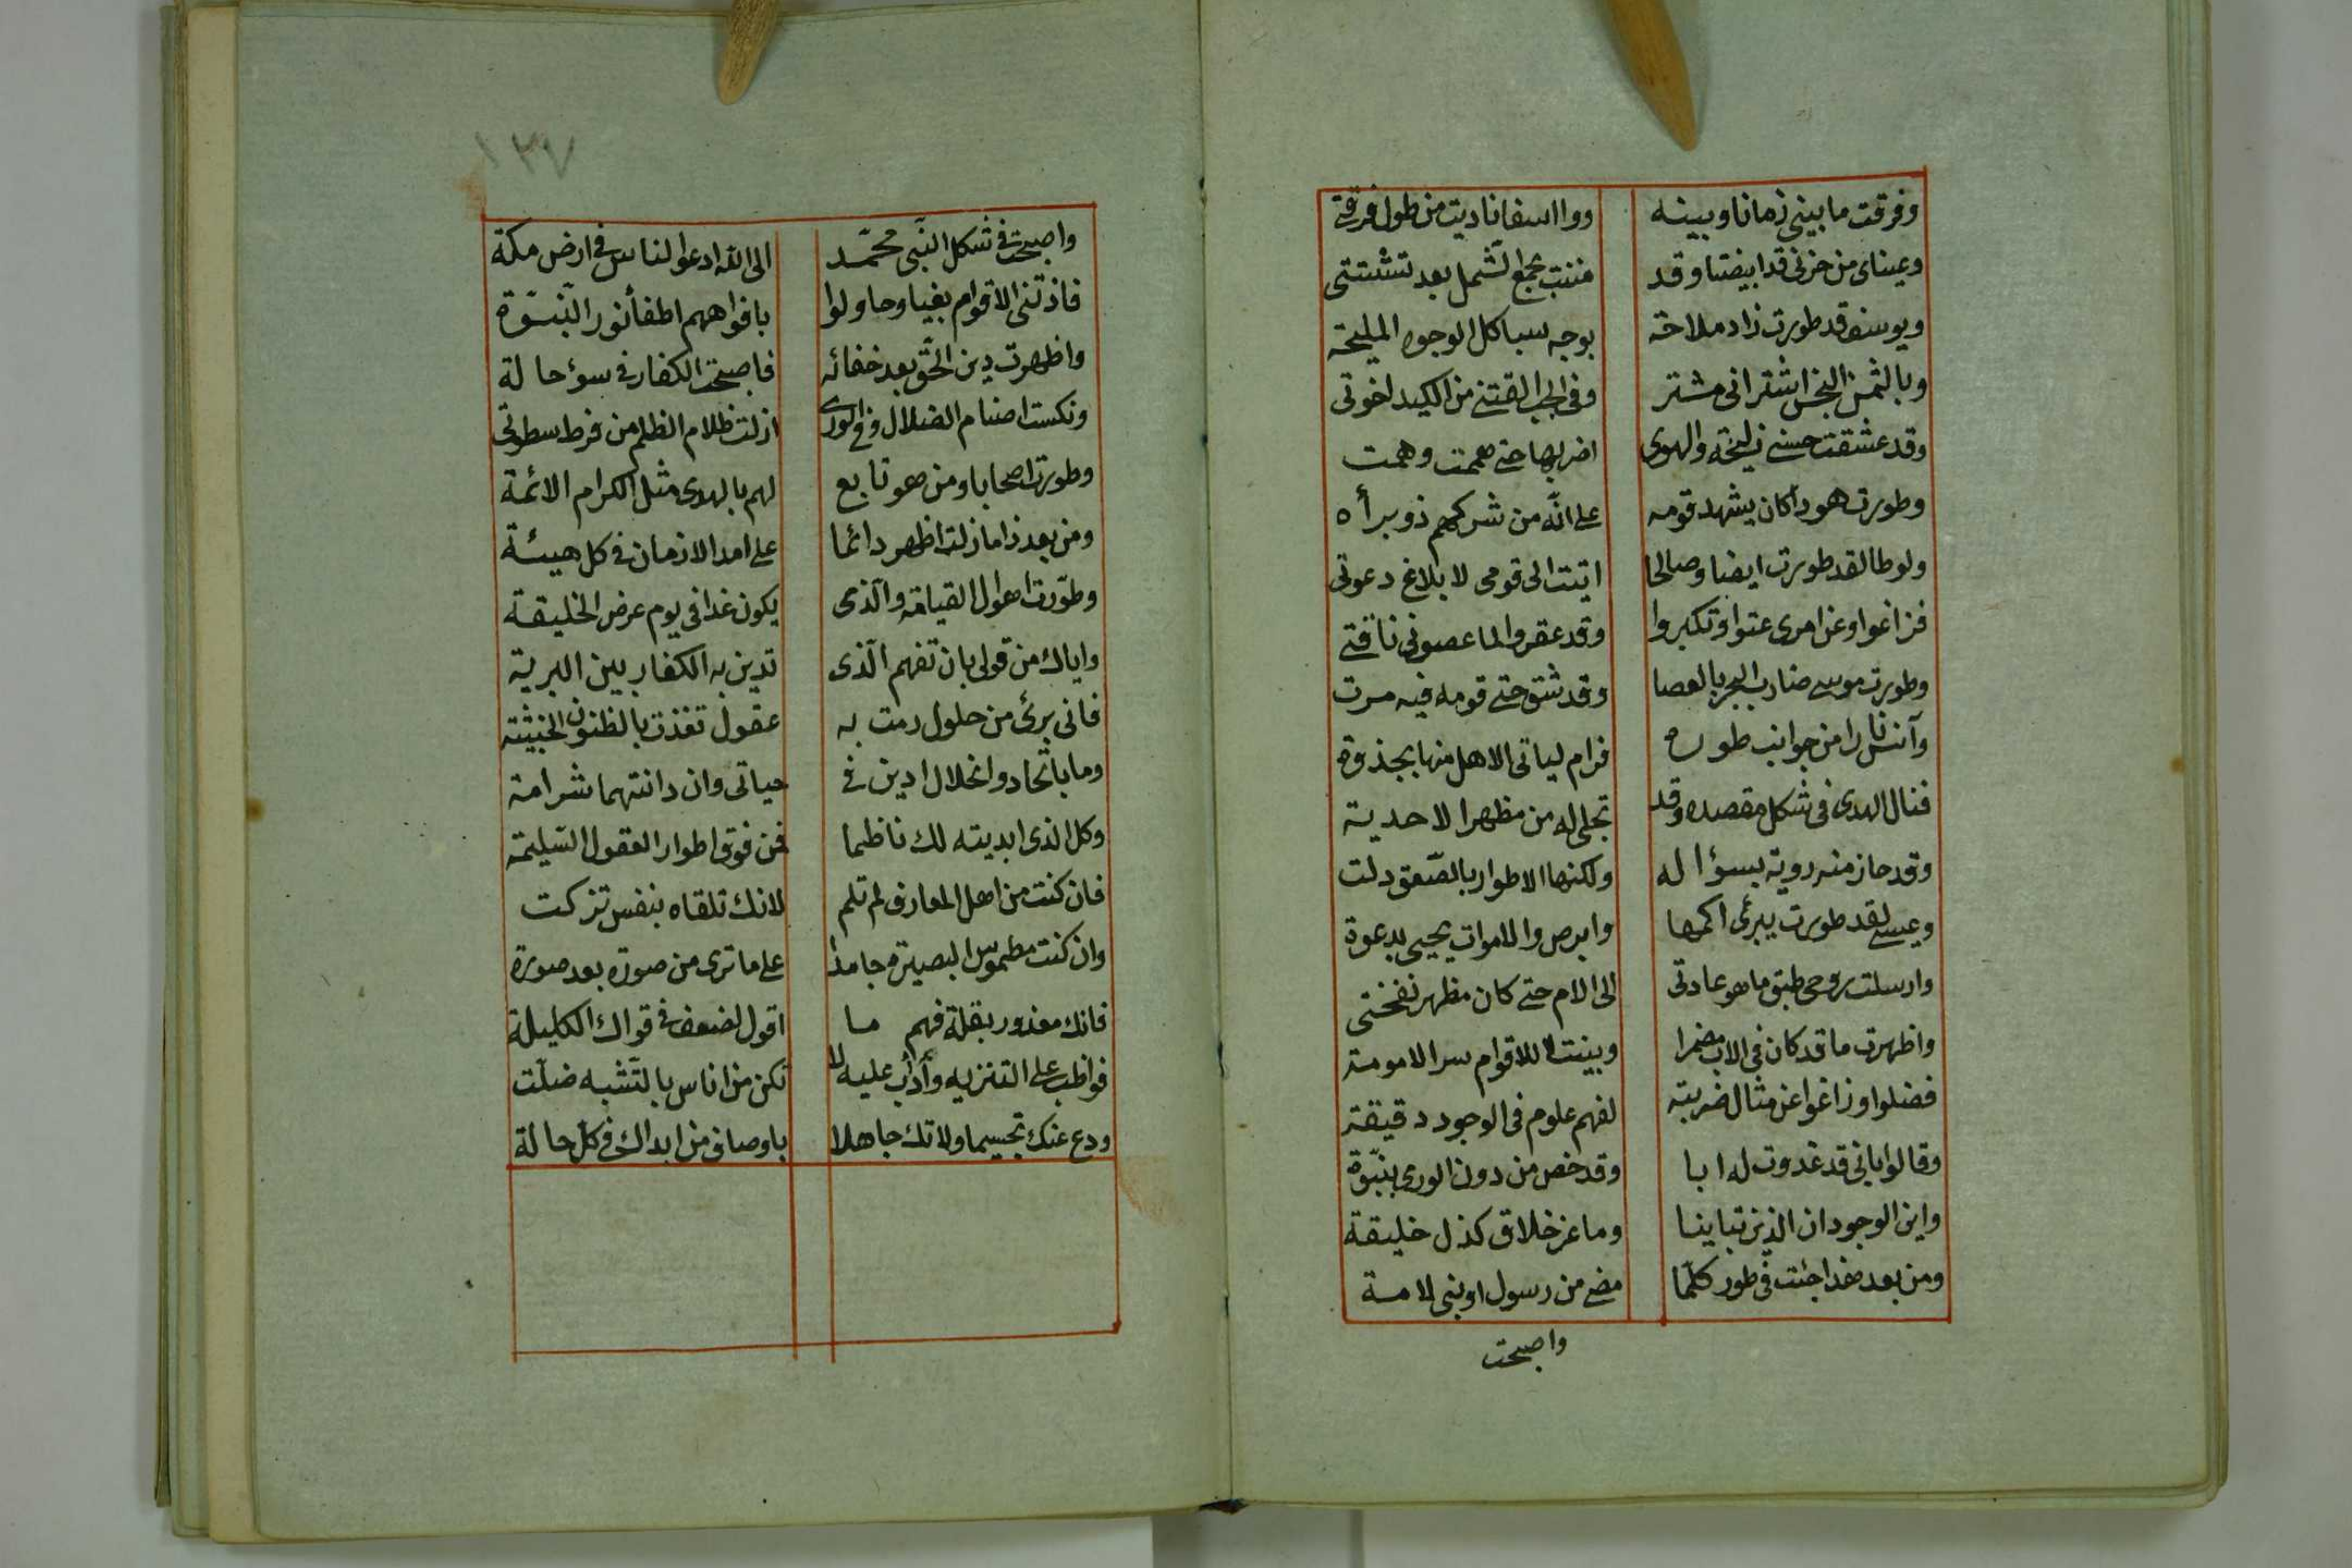 وفرقت ما بيني زمانا وبينه ووا اسفا ناديت من طول فرقة
وعيناى من حزنى قد ابيضتا وقد مننت بجمع الشمل بعد تشتتى
ويوسف قد طورت زاد ملاحة بوجه سبا كل الوجوه المليحة
وبالثمن البخس اشترانى مشتر وفى الجب القتنى من الكيد اخوتى
وقد عشقت حسنى زليخة والهوى اضر بها حتى هممت وهمت
وطورت هودا كان يشهد قومه على انه من شركهم ذو برأه
ولوطا لقد طورت ايضا وصالحا اتيت الى قومى لابلاغ دعوتى
فزاغوا وعن امرى عتوا وتكبروا وقد عقروا لما عصونى ناقتى
وطورت موسى ضارب البحر بالعصا وقد شق حتى قومه فيه مرت
وآنس نارا من جوانب طوره فرام لياتى الاهل منها بجذوة
فنال الهدى فى شكل مقصده وقد تجلى له من مظهر الاحدية
وقد حاز منه روية بسؤاله ولكنها الاطوار بالصعق دلت
وعيسى لقد طورت يبرئ اكمها وابرص والاموات يحيى بدعوة
وارسلت روحى طبق ما هو عادتى الى الام حتى كان مظهر نفختى
واظهرت ما قد كان فى الاب مضمرا وبينت للاقوام سر الامومة
فضلوا وزاغوا عن مثال ضربته لفهم علوم فى الوجود دقيقة
وقالوا بانى قد غدوت له ابا وقد خص من دون الورى ببنوة
واين الوجودان الذين تباينا وما عز خلاق كذل خليقة
ومن بعد هذا جئت فى طور كلما مضى من رسول او نبى لامة
واصبحت
١٣٧
واصبحت فى شكل النبى محمد الى الله ادعو الناس فى ارض مكة
فاذتنى الاقوام بغيا وحاولوا بافواههم اطفأ نور النبوة
واظهرت دين الحق بعد خفائه فاصبحت الكفار فى سوء حالة
ونكست اصنام الضلال وفى الورى ازلت ظلام الظلم من فرط سطوتى
وطورت اصحابا ومن هو تابع لهم بالهدى مثل الكرام الائمة
ومن بعد ذا ما زلت اظهر دائما على امد الازمان فى كل هيئة
وطورت اهوال القيامة والذى يكون غدا فى يوم عرض الخليقة
واياك من قولى بان تفهم الذى تدين به الكفار بين البرية
فانى برئ من حلول رمت به عقول تغذت بالظنون الخبيثة
وما باتحاد وانحلال ادين فى حياتى وان دانتهما شر امة
وكل الذى ابديته لك ناظما فمن فوق اطوار العقول السليمة
فان كنت من اهل المعارف لم تلم لانك تلقاه بنفس تزكت
وان كنت مطموس البصيرة جامدا على ما ترى من صورة بعد صورة
فانك معذور بقلة فهم ما اقول لضعف فى قواك الكليلة
فواظب على التنزيه وأدأب عليه لا تكن من اناس بالتشبه ضلت
ودع عنك تجسيما ولا تك جاهلا باوصافى من ابداك فى كل حالة